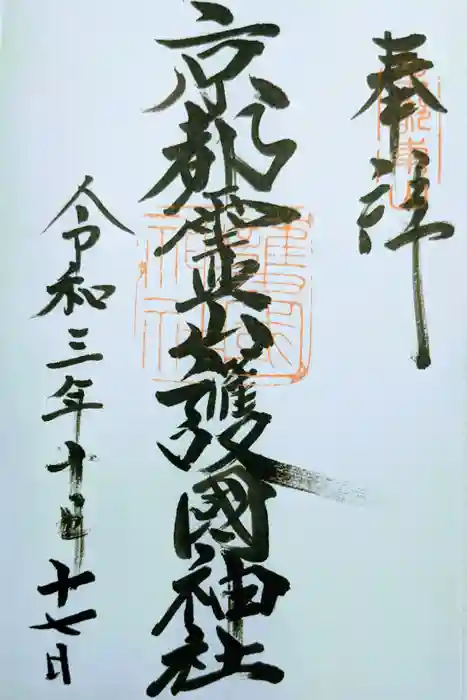 奉拝
京都霊山護國神社
令和三年十月十七日